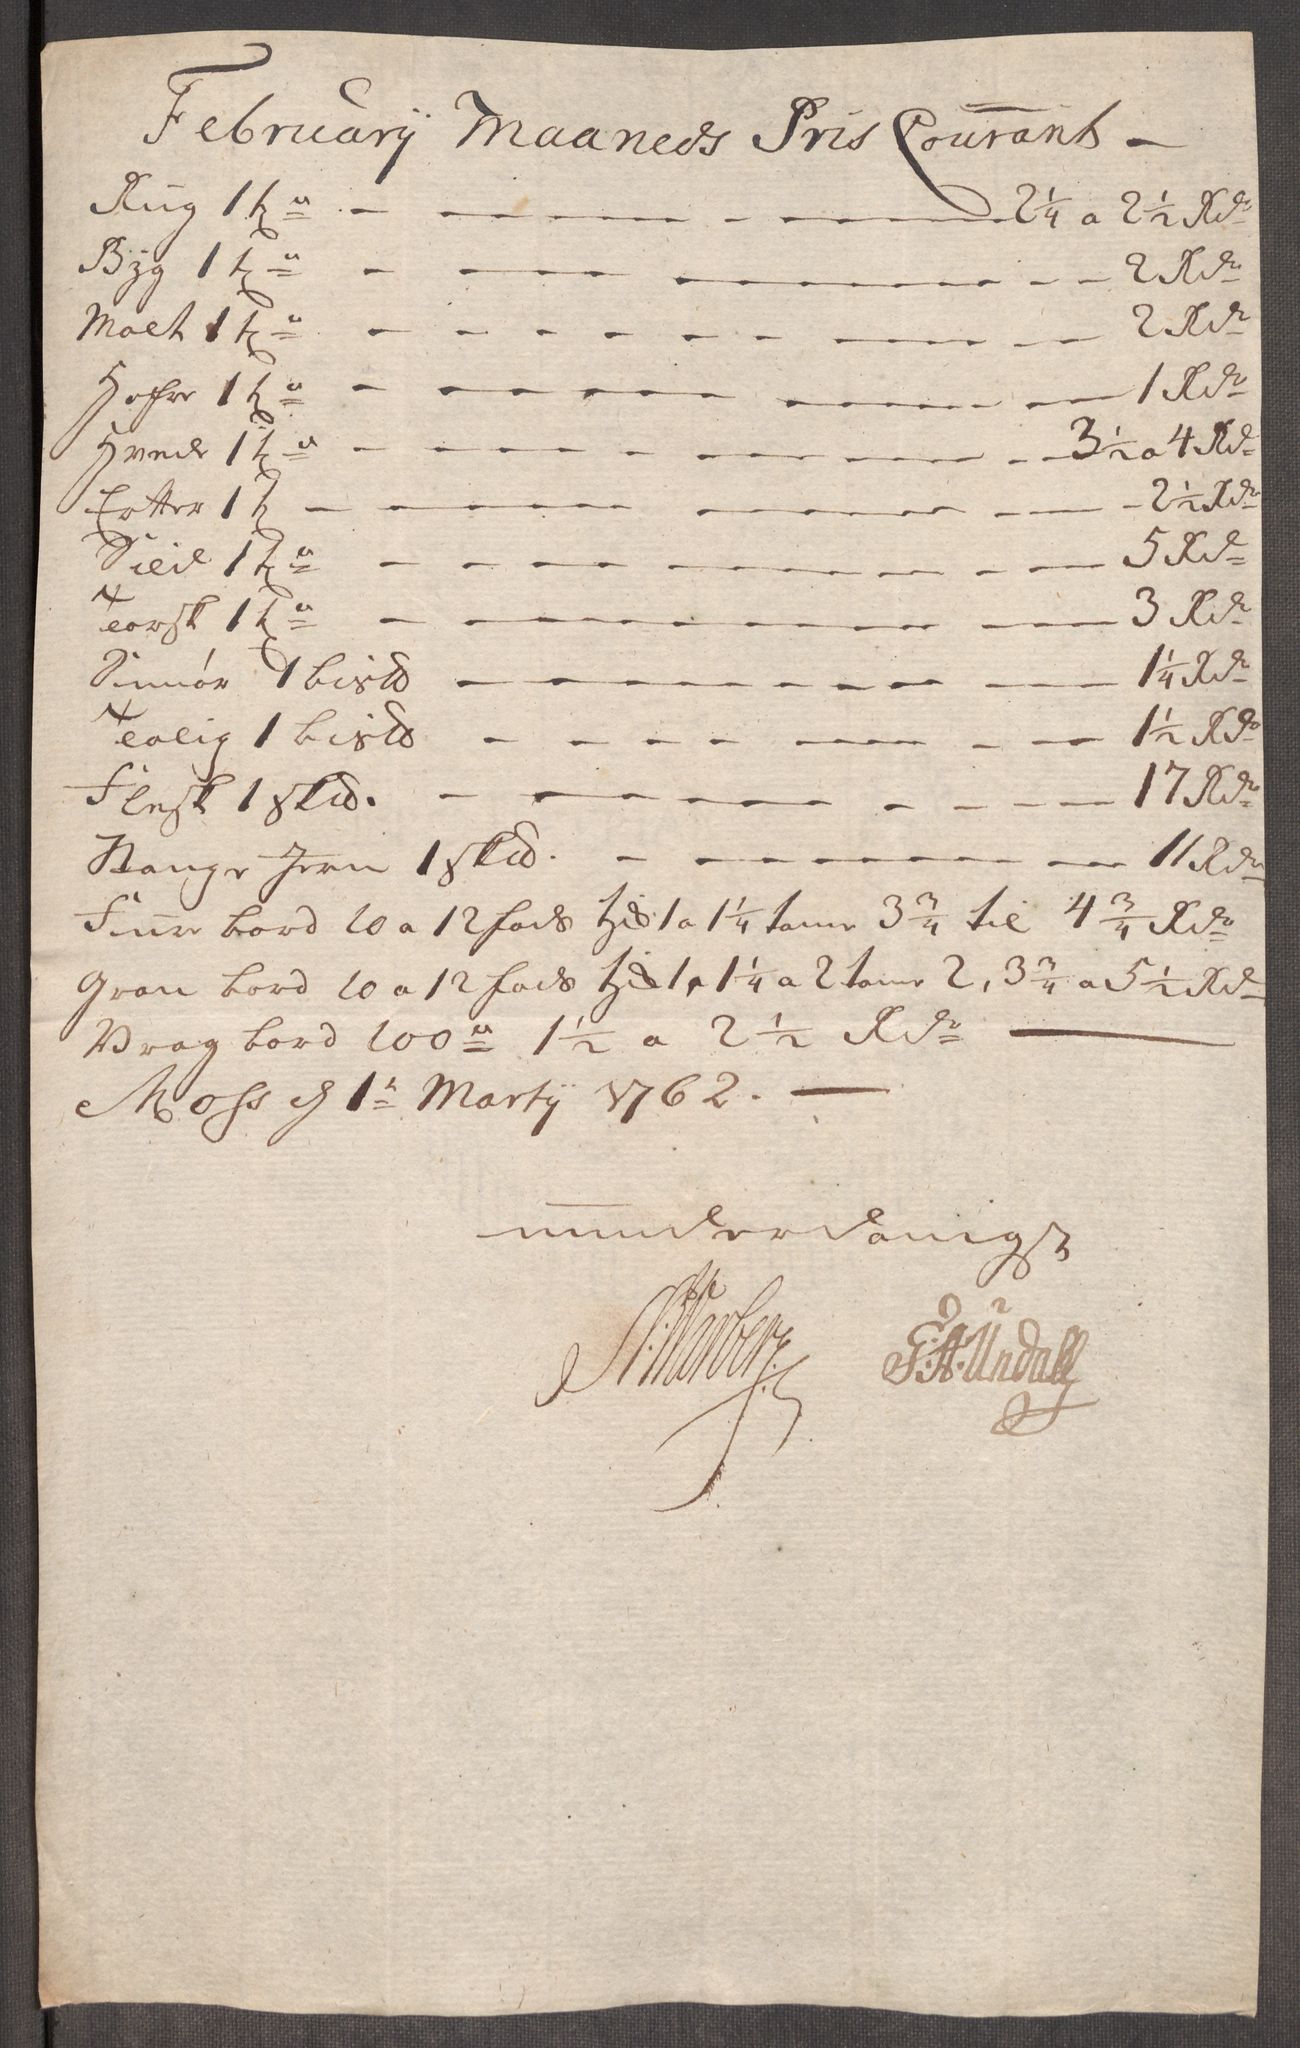 Februarij Maaneds Pris Courant —
Rug 1 tde — 2 1/4 a 2 1/2 Rdr
Byg 1 tde — 2 Rdr
Malt 1 tde — 2 Rdr
Hafre 1 tde — 1 Rdr
Hvede 1 tde — 3 1/2 a 4 Rdr
Ertter 1 t — 2 1/2 Rdr
Sild 1 tde — 5 Rdr
Torsk 1 tde — 3 Rdr
Smiør 1 bispd — 1 1/4 Rdr
Talig 1 bispd — 1 1/2 Rdr
Flesk 1 skpd. — 17 Rdr
Stange Jern 1 skpd. — 11 Rdr
Furre bord 10 a 12 fods 1 a 1 1/4 tome 3 3/4 til 4 3/4 Rdr
Gran bord 10 a 12 fods 1, 1 1/4 a 2 tome 2, 3 3/4 a 5 1/2 Rdr
Vrag bord 100de 1 1/2 a 2 1/2 Rdr —
Moss d 1te Martij 1762. —
underdanigst
G: A: Undall